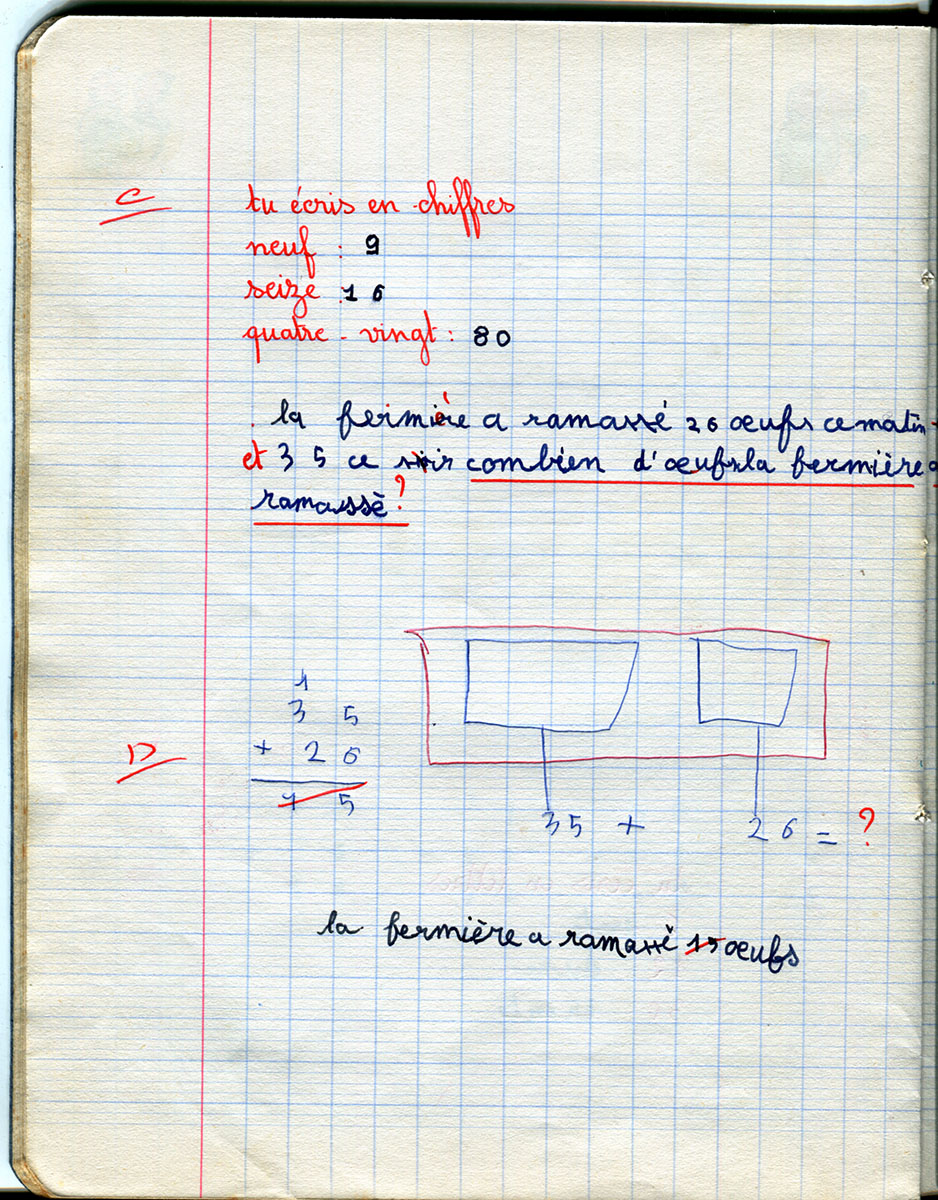 C
tu écris en chiffres
neuf : 9
seize : 16
quatre-vingt : 80
la fermière a ramassé 26 œufs ce matin
et 35 ce soir combien d'œufs la fermière a
ramassè ?
1
35
D + 26
15
35 + 26 = ?
la fermière a ramassè 15 œufs